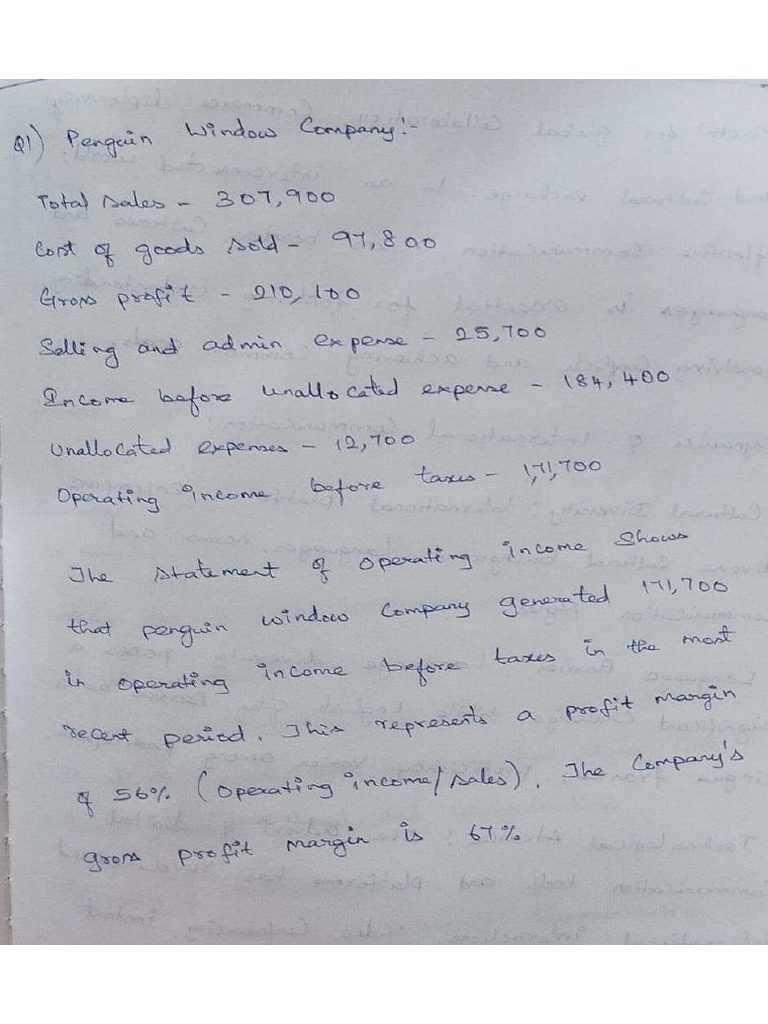 Q1) Penguin Window Company:-
Total sales - 307,900
Cost of goods sold - 97,800
Gross profit - 210,100
Selling and admin expense - 25,700
Income before unallocated expense - 184,400
Unallocated expenses - 12,700
Operating income before taxes - 1,71,700
The statement of operating income shows
that penguin window company generated 171,700
in operating income before taxes in the most
recent period. This represents a profit margin
of 56% (operating income/sales). The company's
gross profit margin is 67%